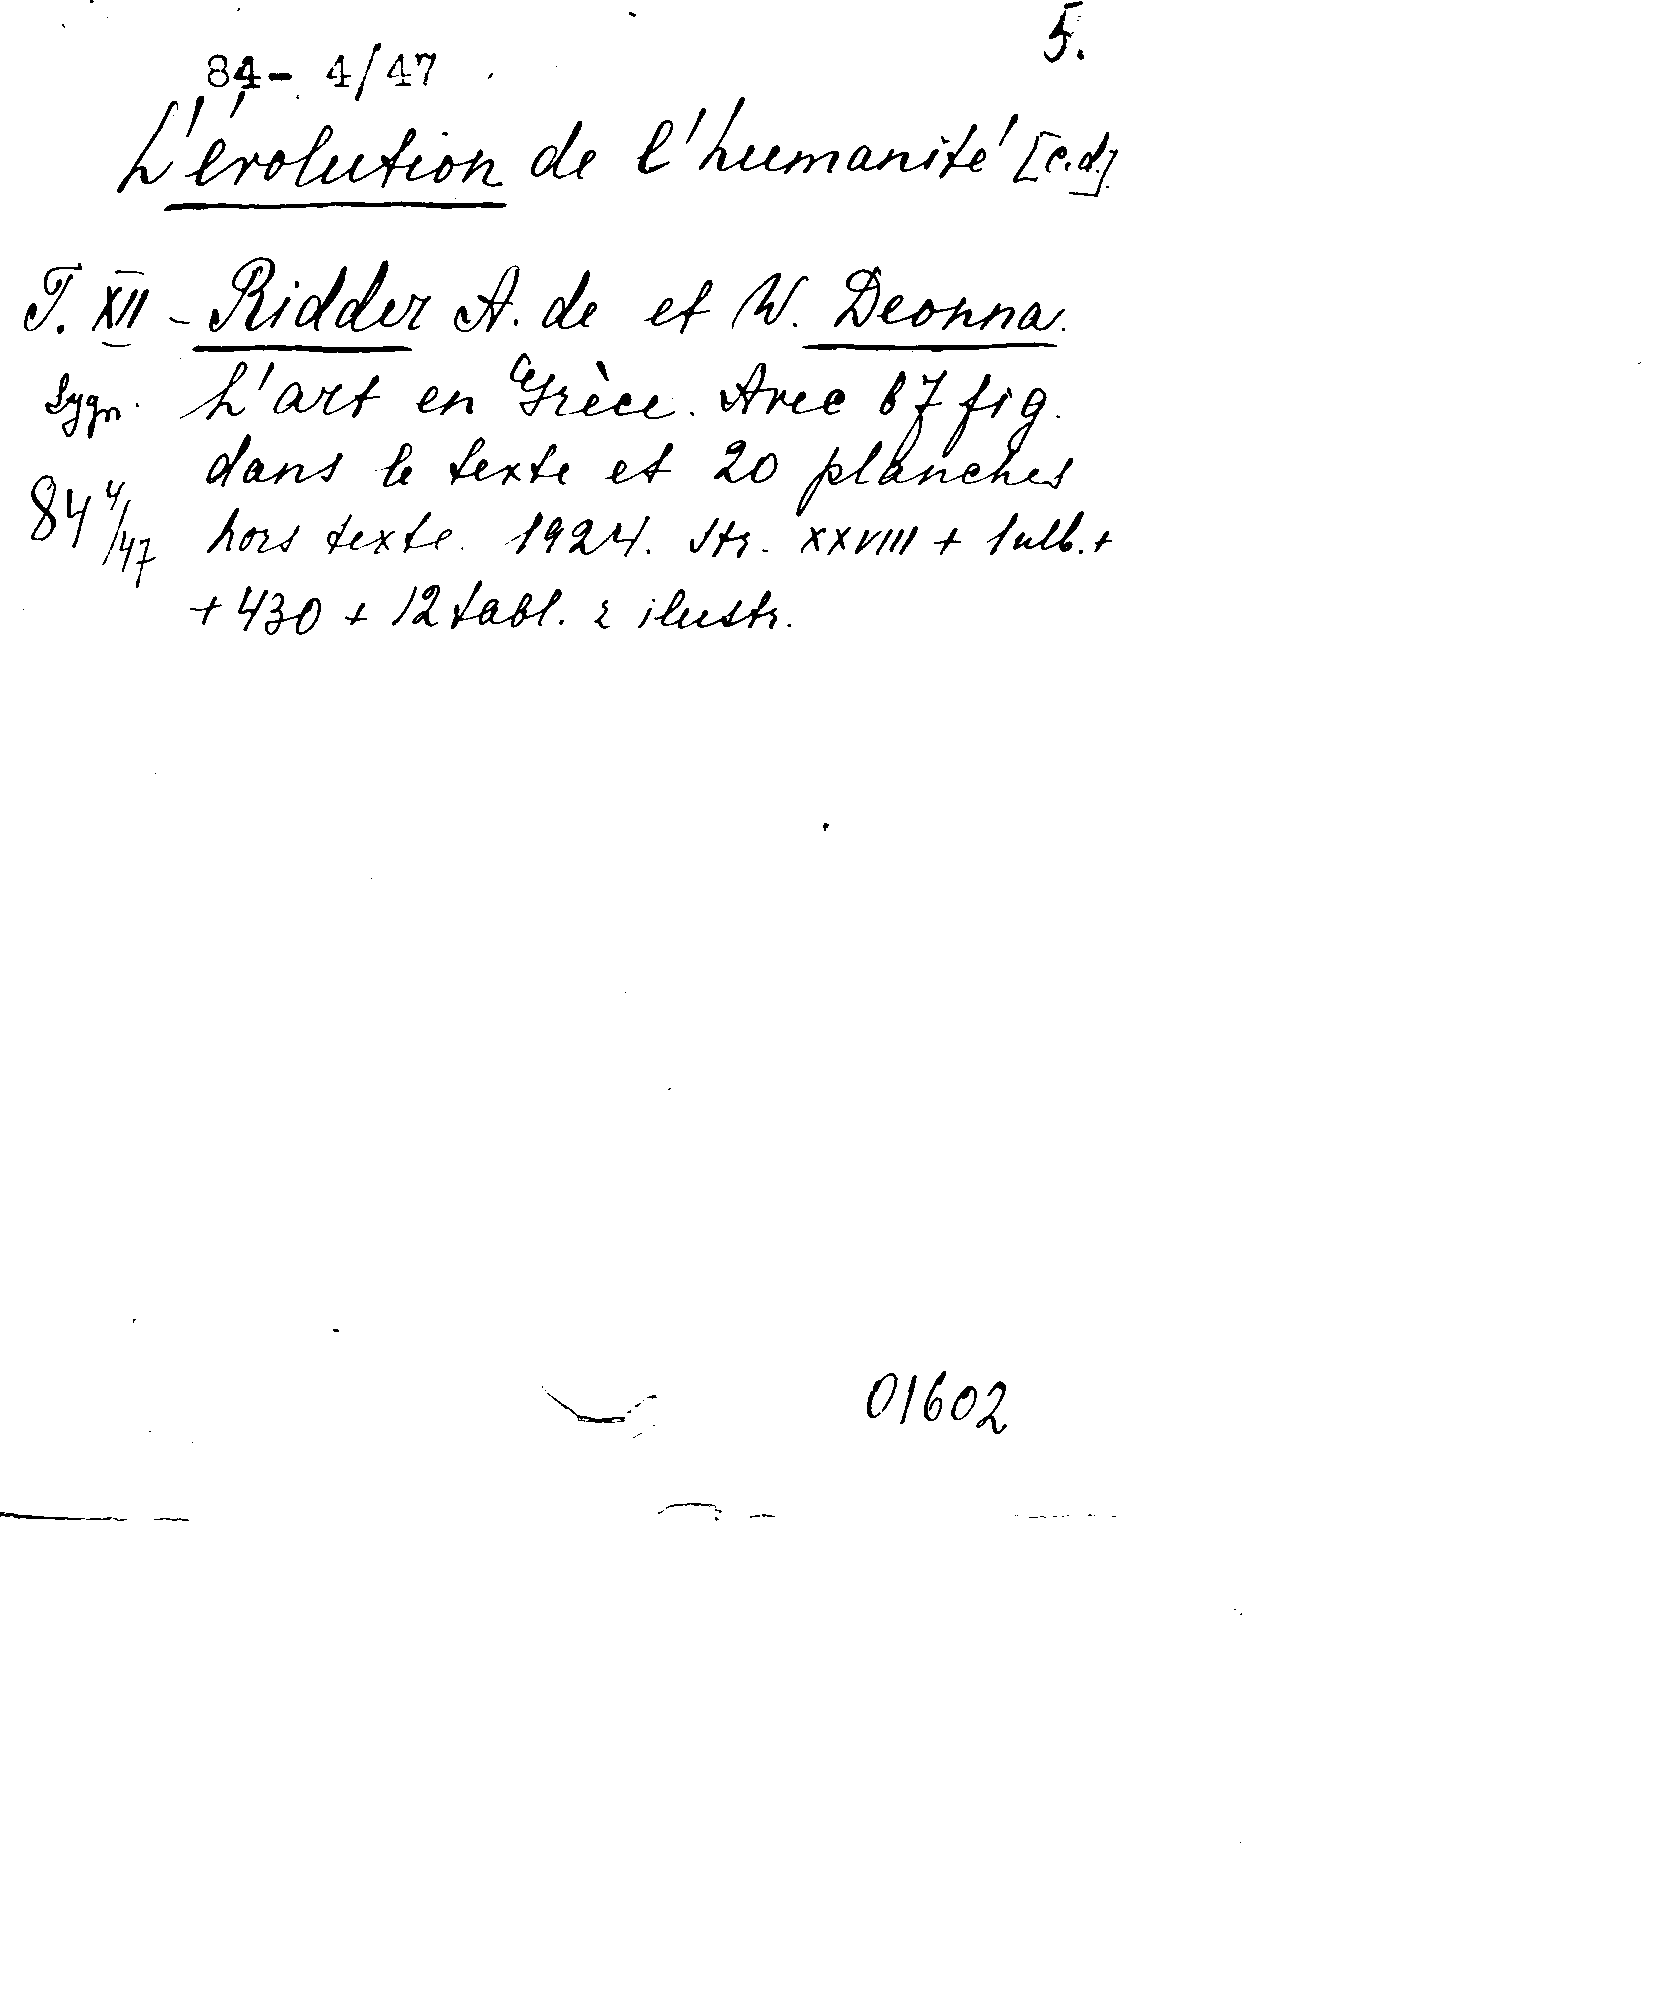 5.
84- 4/47
L'évolution de l'humanité [c.d.].
T. XII - Ridder A. de et W. Deonna.
Sygn. L'art en Grèce. Avec 67 fig.
dans le texte et 20 planches
84 4/47 hors texte. 1924. Str. XXVIII + 1 nlb. +
+ 430 + 12 tabl. z ilustr.
01602